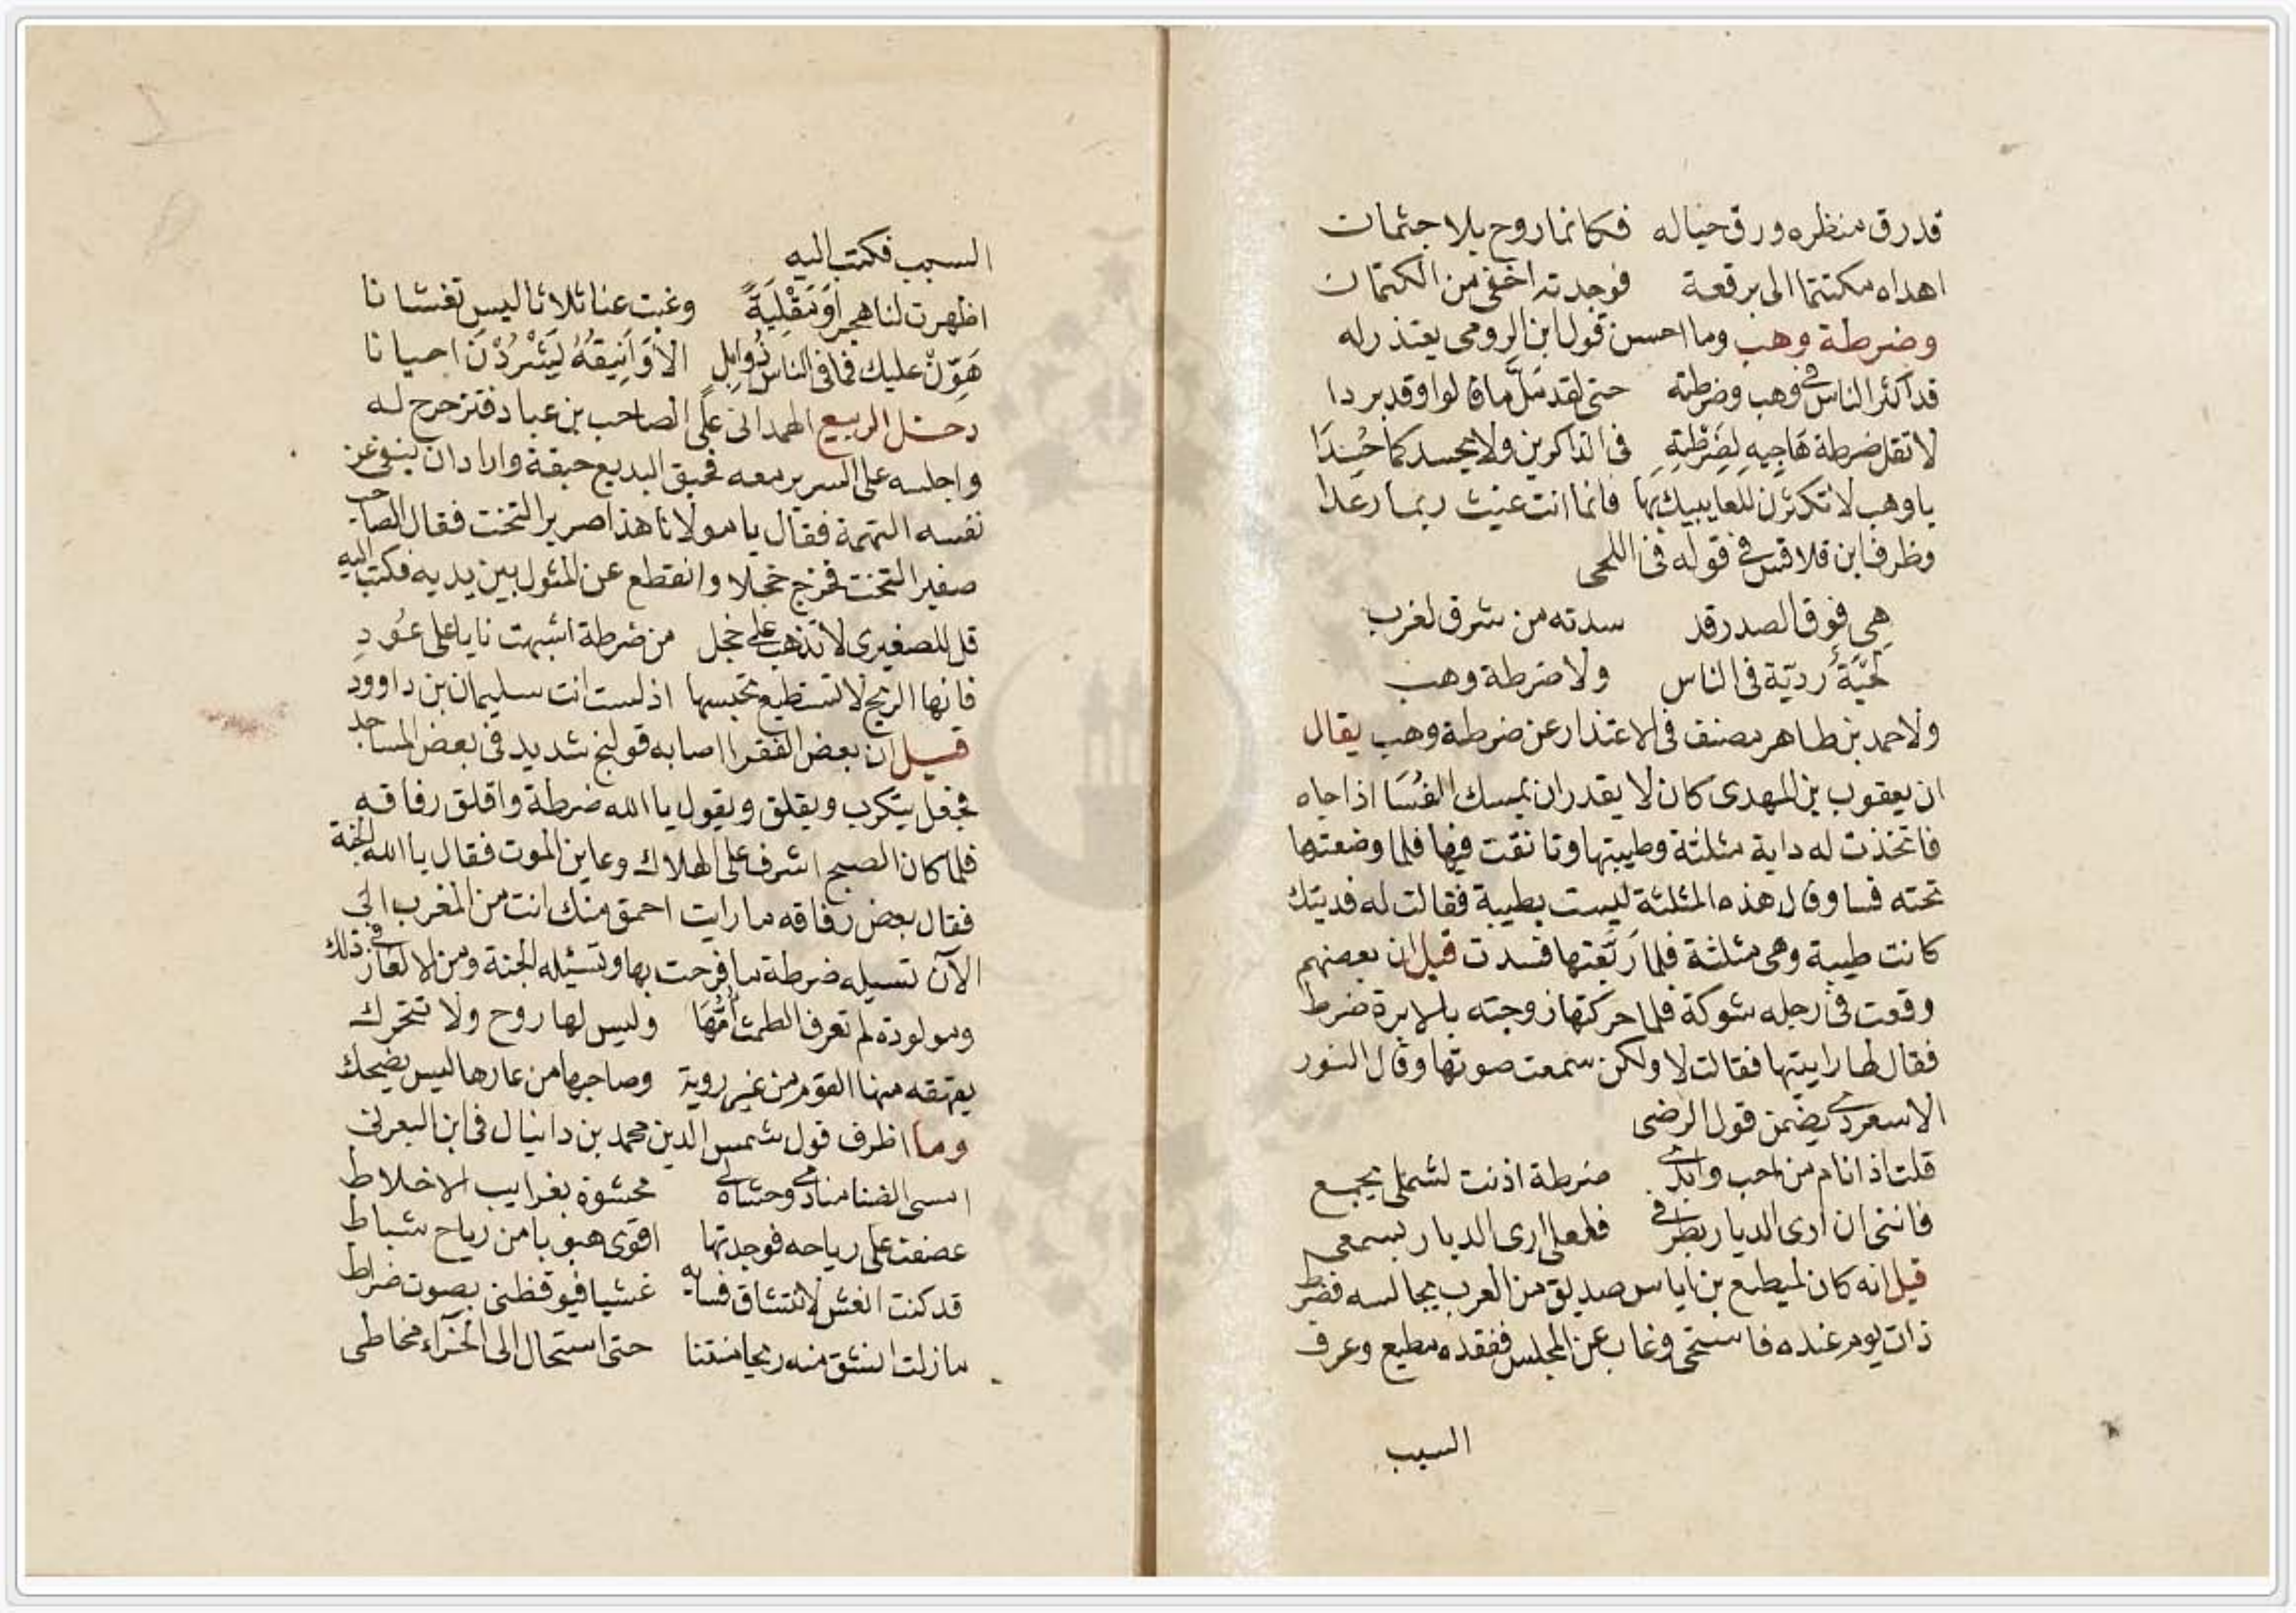 قد رق منظره ورق خياله فكانما روح بلا جثمان
اهداه مكتتما الى برقعة فوجدته اخفى من الكتمان
وضرطة وهب وما احسن قول ابن الرومى يعتذر له
قد اكثر الناس فى وهب وضرطته حتى لقد مَلَّ ما قالوا وقد بردا
لا تقل ضرطة هَاجِيهِ لِضَرْطَتِهِ فى الذاكرين ولا يحسد كما حُسِدَا
يا وهب لا تكثرن للعايبيك بها فانما انت غيث ربما رعدا
وظرف ابن قلاقس فى قوله فى اللحى
هِى فوق الصدر قد سدته من شرق لغرب
لحيَةُ رديّة فى الناس ولا ضرطة وهب
ولاحمد بن طاهر مصنف فى الاعتذار عن ضرطة وهب يقال
ان يعقوب بن المهدى كان لا يقدر ان يمسك الفُسَا اذا جاه
فاتخذت له داية مثلثة وطيبتها وتانقت فيها فلما وضعتها
تحته فسا وقال هذه المثلثة ليست بطيبة فقالت له فديتك
كانت طيبة وهى مثلثة فلما رَبَّعتها فسدت قيل ان بعضهم
وقعت فى رجله شوكة فلما حركتها زوجته بالابرة ضرط
فقال لها رايتها فقالت لا ولكن سمعت صوتها وقال النور
الاسعردى يضمن قول الرضى
قلت اذ انام من احب وابدى ضرطة اذنت لشملى بجمع
فاتنى ان ارى الديار بطرفى فلعلى ارى الديار بسمعى
قيل انه كان لمطيع بن اياس صديق من العرب يجالسه فضرط
ذات يوم عنده فاستحى وغاب عن المجلس ففقده مطيع وعرف
السبب
السبب فكتب اليه
اظهرت لنا هجرا وَمَقْلِيَةً وغبت عنا ثلاثا ليس تغشانا
هَوِّنْ عليك فما فى الناس ذُو اِبِلٍ الا وَاَيْنِقُهُ يَشْرُدْنَ احيانا
دخل الربيع الهمدانى على الصاحب بن عباد فتزحزح له
واجلسه على السرير معه فحبق البديع حبقة واراد ان ينفى عن
نفسه التهمة فقال يا مولانا هذا صرير التخت فقال الصاحب
صفير التخت فخرج خجلا وانقطع عن المثول بين يديه فكتب اليه
قل للصغيرى لا تذهب على خجل من ضرطة اشبهت نايا على عُودِ
فانها الريح لا تستطيع تحبسها اذ لست انت سليمان بن داوود
قيل ان بعض الفقرا اصابه قولنج شديد فى بعض المساجد
فجعل يتكرب ويقلق ويقول يا الله ضرطة واقلق رفاقه
فلما كان الصبح اشرف على الهلاك وعاين الموت فقال يا الله الجنة
فقال بعض رفاقه ما رايت احمق منك انت من المغرب الى
الآن تسيله ضرطة ما فرحت بها وتسئله الجنة ومن الالغاز فى ذلك
ومولودة لم تعرف الطمث أُمُّهَا وليس لها روح ولا تتحرك
يقهقه منها القوم من غير روية وصاحبها من عارها ليس يضحك
وما اظرف قول شمس الدين محمد بن دانيال فى ابن البعرنى
امسى الفنا منادمى وحشاه محشوة بغرايب الاخلاط
عصفت على رياحه فوجدتها اقوى هبوبا من رياح شباط
قد كنت انعش لانتشاق فسايه غشيا فيوقظنى بصوت ضراط
ما زلت انشق منه ريحا منتنا حتى استحال الى الخرآء مخاطى